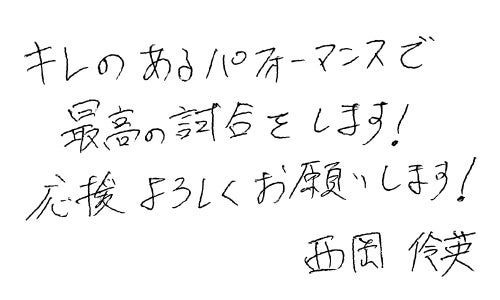 キレのあるパフォーマンスで
最高の試合をします!
応援よろしくお願いします!
西岡 伶英